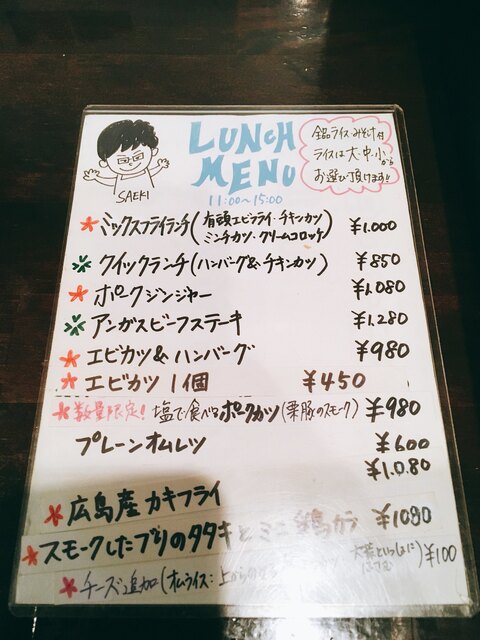 SAEKI
LUNCH
MENU
11:00~15:00
全品ライス・みそ汁付
ライスは大・中・小から
お選び頂けます!!
ミックスフライランチ(有頭エビフライ・チキンカツ
ミンチカツ・クリームコロッケ) ¥1.000
クイックランチ(ハンバーグ&チキンカツ) ¥850
ポークジンジャー ¥1.080
アンガスビーフステーキ ¥1.280
エビカツ&ハンバーグ ¥980
エビカツ1個 ¥450
数量限定!塩で食べるポークカツ(栗豚のスモーク) ¥980
プレーンオムレツ ¥600
¥1.080
広島産カキフライ
スモークしたブリのタタキとミニ鶏カラ ¥1080
チーズ追加(オムライス:上からのせる ¥100